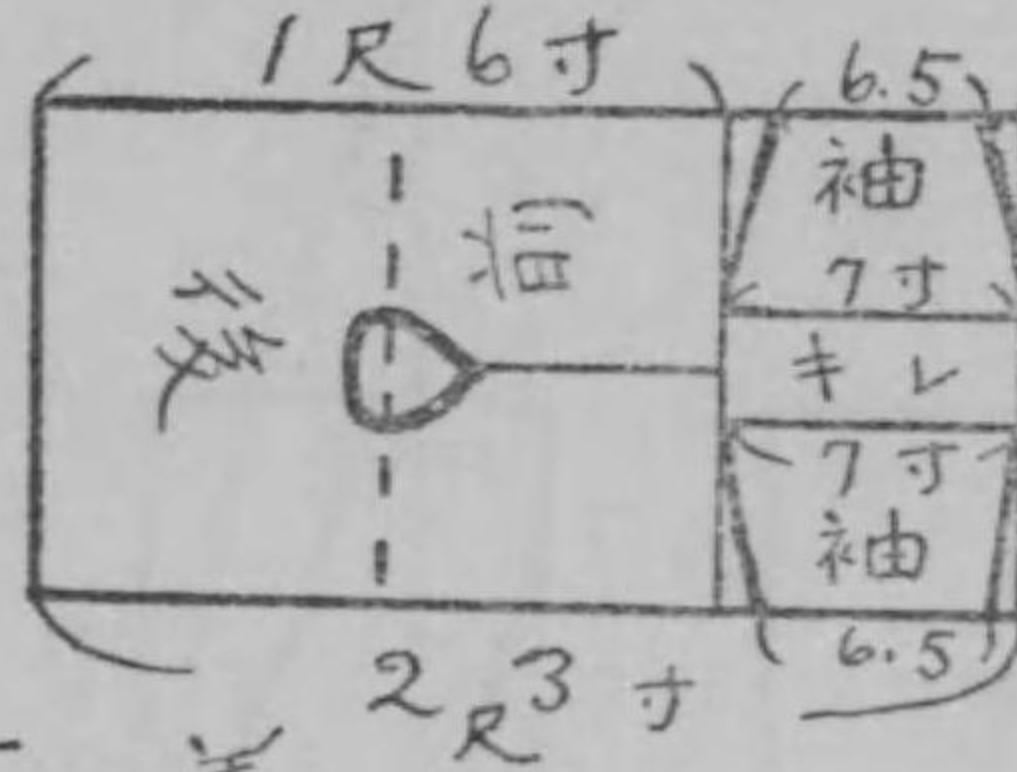 1尺6寸
6.5
袖
7寸
前
後
キレ
7寸
袖
6.5
2尺3寸